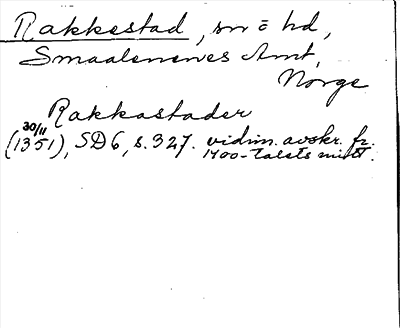 Rakkestad, sn o hd,
Smaalenenes Amt,
Norge
Rakkastader
30/11
(1351), SD6, s. 327. vidim. avskr. fr.
1400-talets mitt.